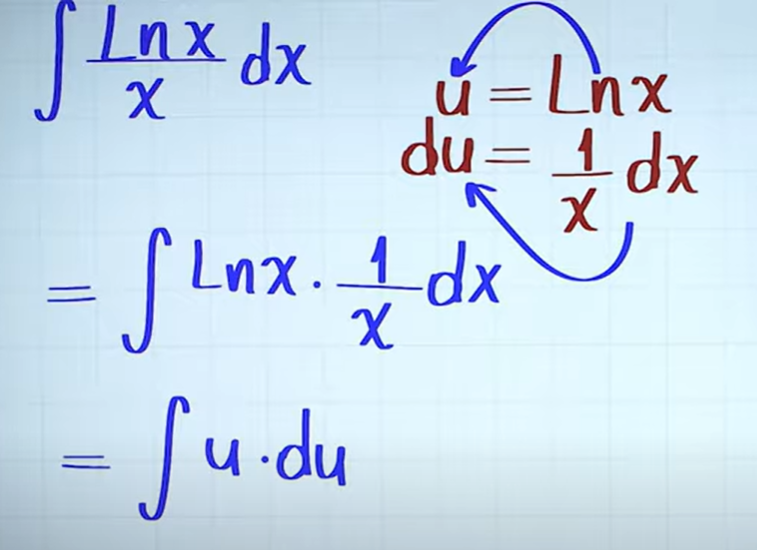 ∫ Lnx/x dx
u = Lnx
du = 1/x dx
= ∫ Lnx · 1/x dx
= ∫ u · du